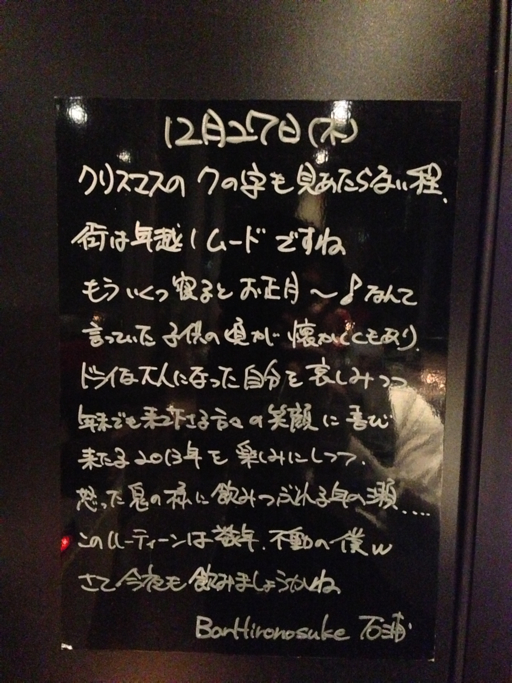 12月27日(木)
クリスマスのクの字も見あたらない程、
街は年越しムードですね
もういくつ寝るとお正月〜♪なんて
言っていた子供の頃が懐かしくもあり
ドライな大人になった自分を哀しみつつ
年末でも来て下さる方々の笑顔に喜び
来たる2013年を楽しみにしつつ、
怒った鬼の様に飲みつぶれる年の瀬....
このルーティーンは数年、不動の僕w
さて今夜も飲みましょうかね
BarHironosuke 石浦